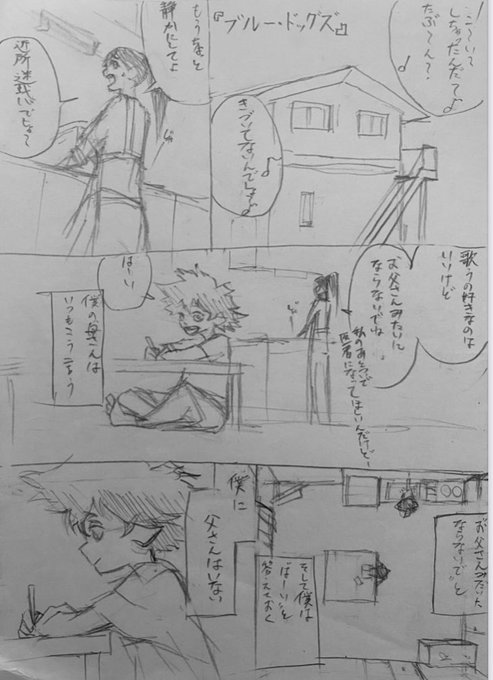 『ブルー・ドッグズ』
しちゃったんだって♪
たぶ～ん？
♪
きづいてないんでしょ♪
もうちょっと
静かにしてよ
近所迷惑でしょ？
歌うの好きなのは
いいけど
お父さんみたいに
ならないでね
私のあとついで
医者になってほしいんだけど…
はーい
僕の母さんは
いつもこう言う
お父さんみたいに
ならないで と
そして僕は
はーいと
答えておく
僕に
父さんはいない